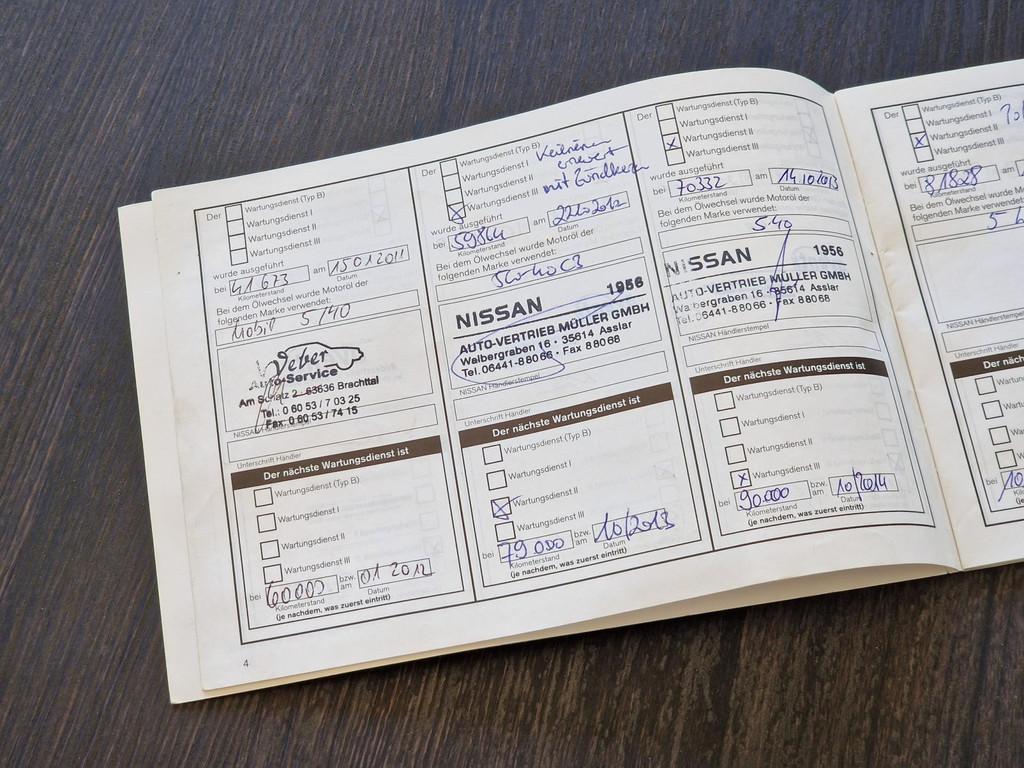 Der
Wartungsdienst (Typ B)
Wartungsdienst I
Wartungsdienst II
Wartungsdienst III
wurde ausgeführt
bei 41673 am 15012011
Kilometerstand Datum
Bei dem Ölwechsel wurde Motoröl der
folgenden Marke verwendet:
Mobil 5/40
Veber
Auto-Service
Am Schatz 2 63636 Brachttal
Tel.: 0 60 53 / 7 03 25
Fax: 0 60 53 / 74 15
Unterschrift Händler
Der nächste Wartungsdienst ist
Wartungsdienst (Typ B)
Wartungsdienst I
Wartungsdienst II
Wartungsdienst III
bei 60000 bzw. am 01 2012
Kilometerstand Datum
(je nachdem, was zuerst eintritt)
4
Der
Wartungsdienst (Typ B)
Wartungsdienst I
Wartungsdienst II
Wartungsdienst III
mit Zündkerzen
wurde ausgeführt
bei am 22102012
Kilometerstand Datum
Bei dem Ölwechsel wurde Motoröl der
folgenden Marke verwendet:
NISSAN 1956
AUTO-VERTRIEB MÜLLER GMBH
Walbergraben 16 · 35614 Asslar
Tel. 06441-88066 · Fax 88068
NISSAN Händlerstempel
Unterschrift Händler
Der nächste Wartungsdienst ist
Wartungsdienst (Typ B)
Wartungsdienst I
Wartungsdienst II
Wartungsdienst III
bei 79000 bzw. am 10/2013
Kilometerstand Datum
(je nachdem, was zuerst eintritt)
Der
Wartungsdienst (Typ B)
Wartungsdienst I
Wartungsdienst II
Wartungsdienst III
wurde ausgeführt
bei 70332 am 14102013
Kilometerstand Datum
Bei dem Ölwechsel wurde Motoröl der
folgenden Marke verwendet:
5-40
NISSAN 1956
AUTO-VERTRIEB MÜLLER GMBH
Walbergraben 16 · 35614 Asslar
Tel. 06441-88066 · Fax 88068
NISSAN Händlerstempel
Unterschrift Händler
Der nächste Wartungsdienst ist
Wartungsdienst (Typ B)
Wartungsdienst I
Wartungsdienst II
Wartungsdienst III
bei 90000 bzw. am 10/2014
Kilometerstand Datum
(je nachdem, was zuerst eintritt)
Der
Wartungsdienst (Typ B)
Wartungsdienst I
Wartungsdienst II
Wartungsdienst III
wurde ausgeführt
bei 81828 am
Kilometerstand
Bei dem Ölwechsel wurde
folgenden Marke verwendet:
NISSAN Händlerstempel
Unterschrift Händler
Der nächste
Wartungsdienst
bei
Kilometerstand
(je nachdem,